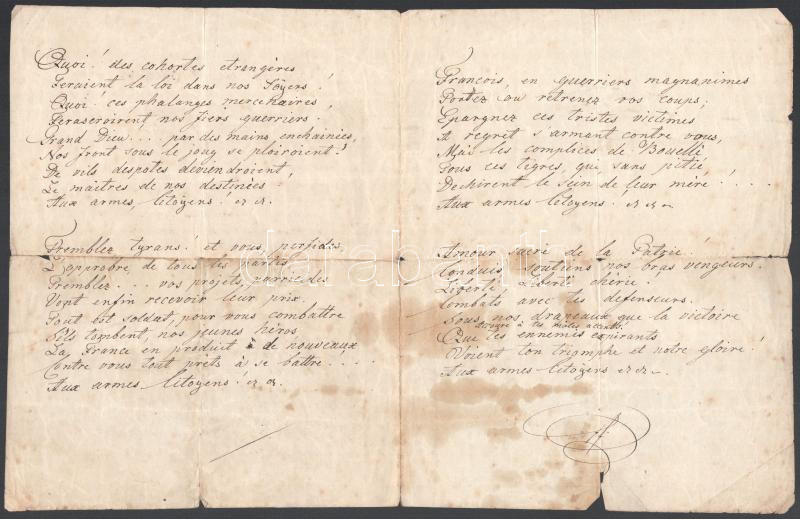 Quoi! des cohortes etrangères
feraient la loi dans nos Föyers!
Quoi! ces phalanges mercenaires,
Terasseroirent nos fiers guerriers.
Grand Dieu... par des mains enchainées,
Nos front sous le joug se plairoient!
De vils despotes deviendroient,
Le maitres de nos destinées
Aux armes, Citoyens!
Tremblez tyrans! et vous, perfides,
L'approbre, de tous les partis
Tremblez... vos projets, parricides
Vont enfin recevoir leur prix.
Tout est soldat, pour vous combattre
S'ils tombent, nos jeunes héros
La France en produit de nouveaux
Contre vous tout prêts à se battre....
Aux armes Citoyens!
Francois, en guerriers magnanimes
Portez ou retenez vos coups,
Epargnez ces tristes victimes
A regret s'armant contre vous,
Mais les complices de Bouellé
Tous ces tigres, qui sans pitié,
Dechirent le sein de leur mère....
Aux armes Citoyens!
Amour sacré de la Patrie!
Conduis, soutiens nos bras vengeurs.
Liberté, Liberté chérie!
Combats avec tes défenseurs.
Sous nos drapeaux que la victoire
accoure à tes mâles accents.
Que tes ennemis expirants
Voient ton triomphe et notre gloire!
Aux armes Citoyens
darabanth